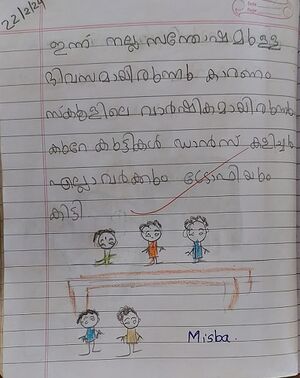 22/2/24
ഇന്ന് നല്ല സന്തോഷമുള്ള
ദിവസമായിരുന്നു കാരണം
സ്കൂളിലെ വാർഷികമായിരുന്നു
കുറേ കുട്ടികൾ ഡാൻസ് കളിച്ചു
എല്ലാവർക്കും ട്രോഫിയും
കിട്ടി
Misba.